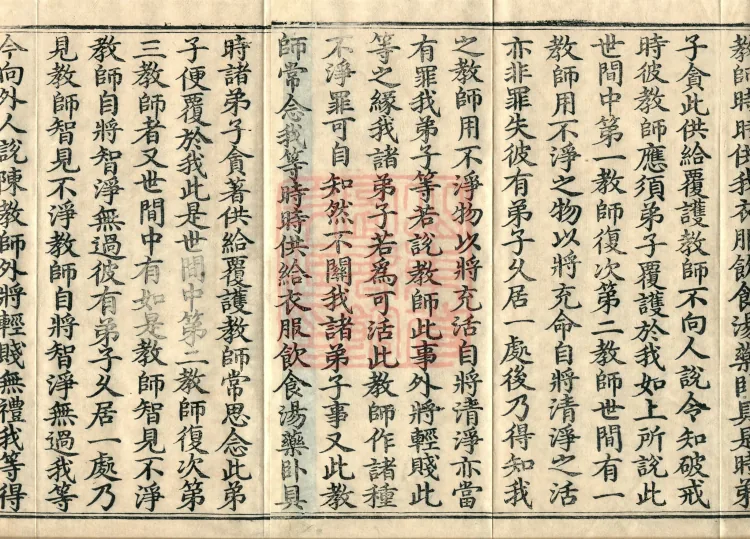 教師時時供我衣服飲食湯藥卧具是時弟
子貪此供給覆護教師不向人說令知破戒
時彼教師應須弟子覆護於我如上所說此
世間中第一教師復次第二教師世間有一
教師用不淨之物以將充命自將清淨之活
亦非罪失彼有弟子久居一處後乃得知我
之教師用不淨物以將充活自將清淨亦當
有罪我弟子等若說教師此事外將輕賤此
等之緣我諸弟子若為可活此教師作諸種
不淨罪可自知然不關我諸弟子事又此教
師常念我等時時供給衣服飲食湯藥卧具
時諸弟子貪著供給覆護教師常思念此弟
子便覆於我此是世間中第二教師復次第
三教師者又世間中有如是教師智見不淨
教師自將智淨無過彼有弟子久居一處乃
見教師智見不淨教師自將智淨無過我等
今向外人說陳教師外將輕賤無禮我等得